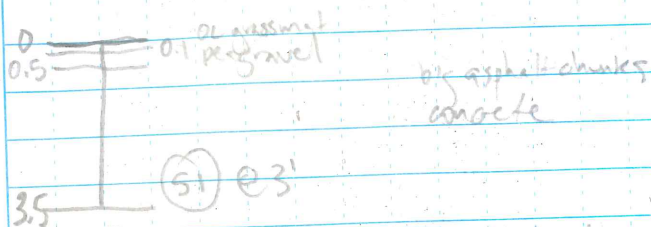 0
0.1 OL grassmat
0.5 peagravel
big asphalt chunks
concrete
S1 @ 3'
3.5